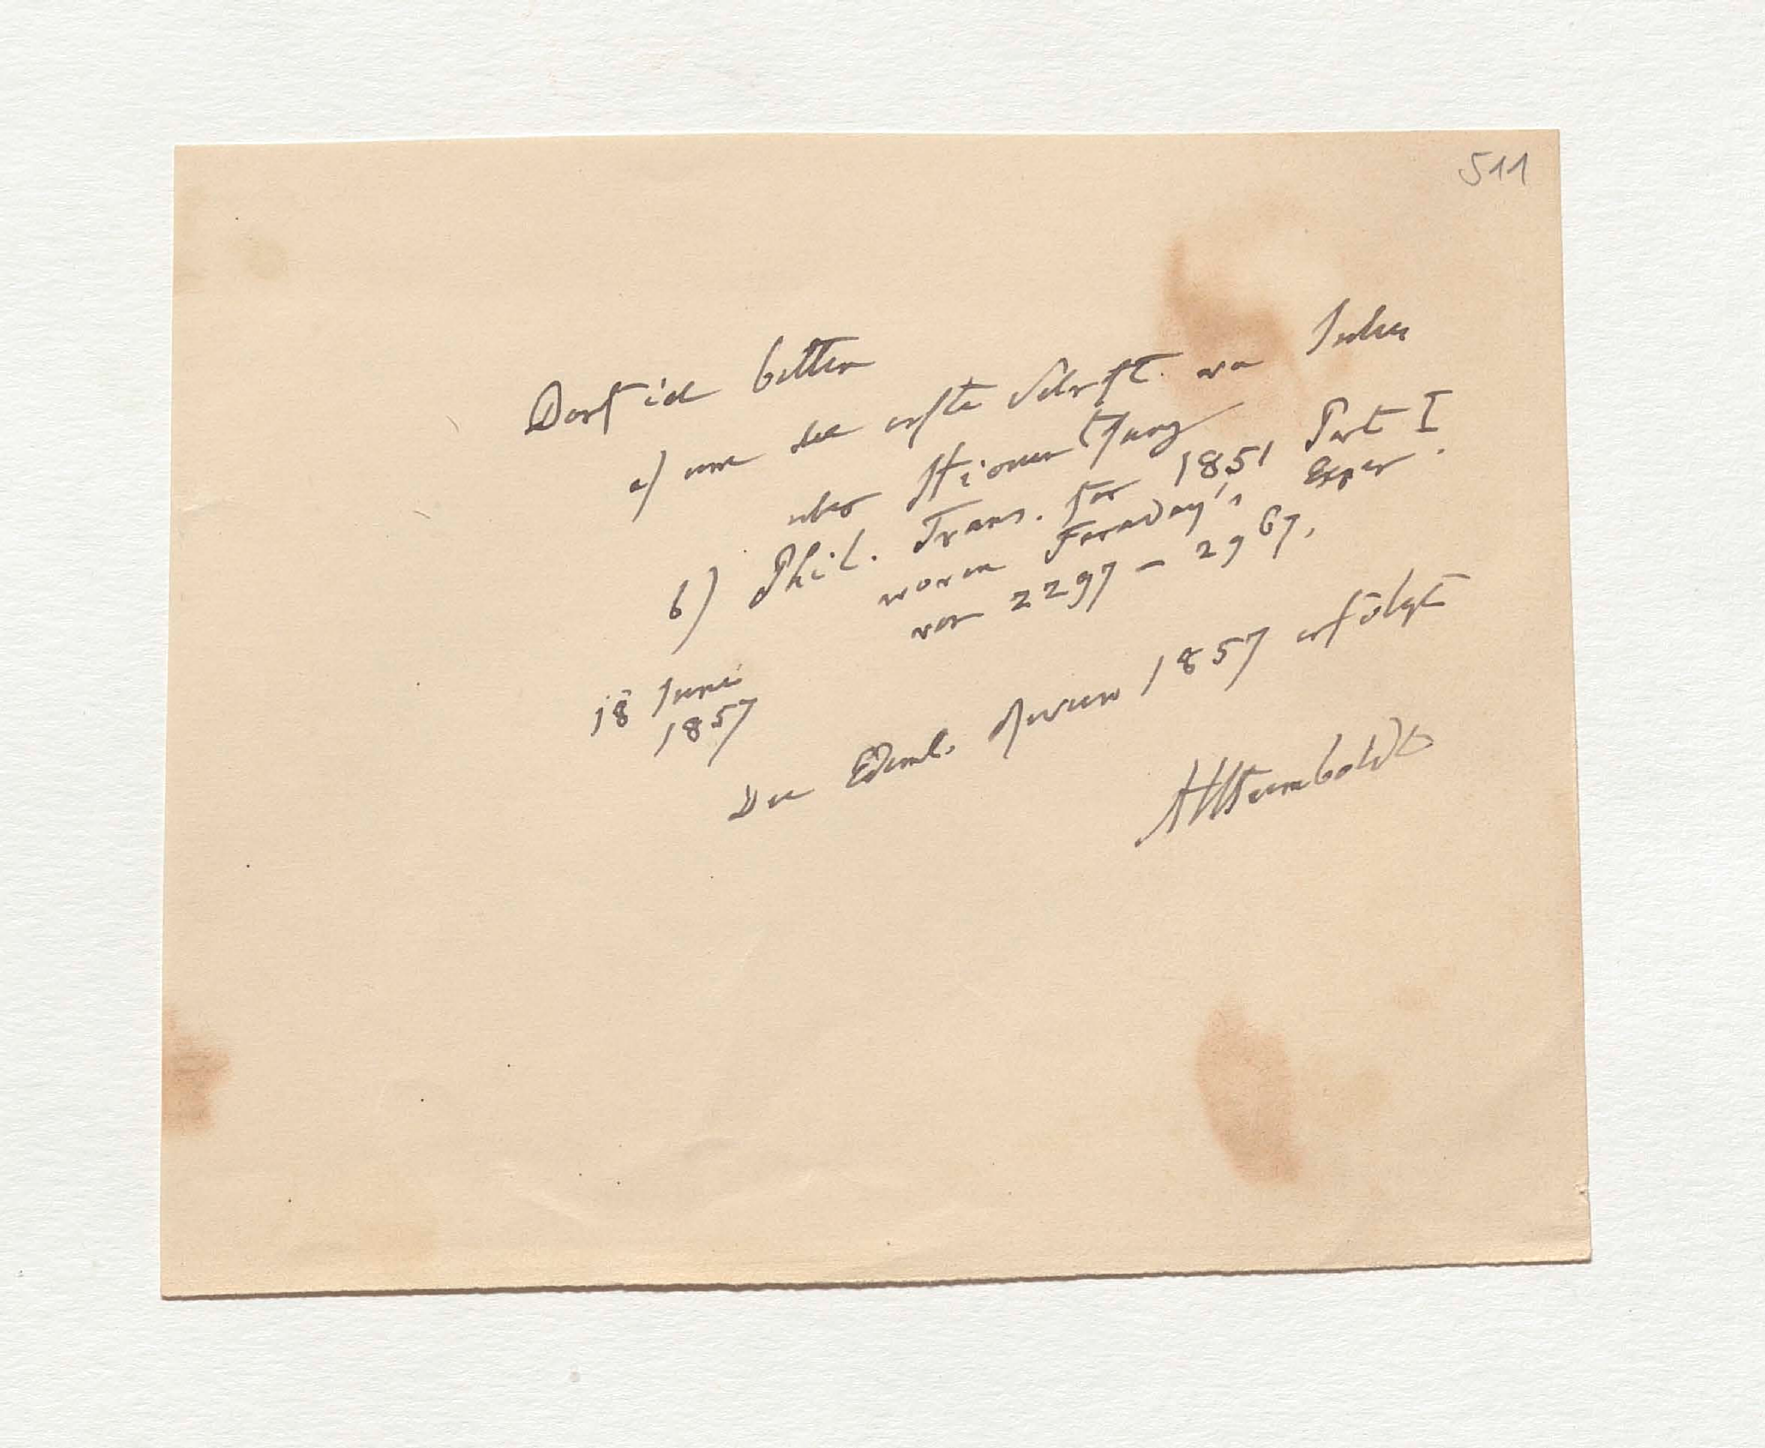 511
Darf ich bitten
a) um die erste Schrift von Julien
über Hiouen Thsang
b) Phil. Trans. for 1851 Part I
worin Faraday's Exper.
von 2297 – 2967.
18 Juni
1857
Die Edinb. Review 1857 erfolgt
AHumboldt